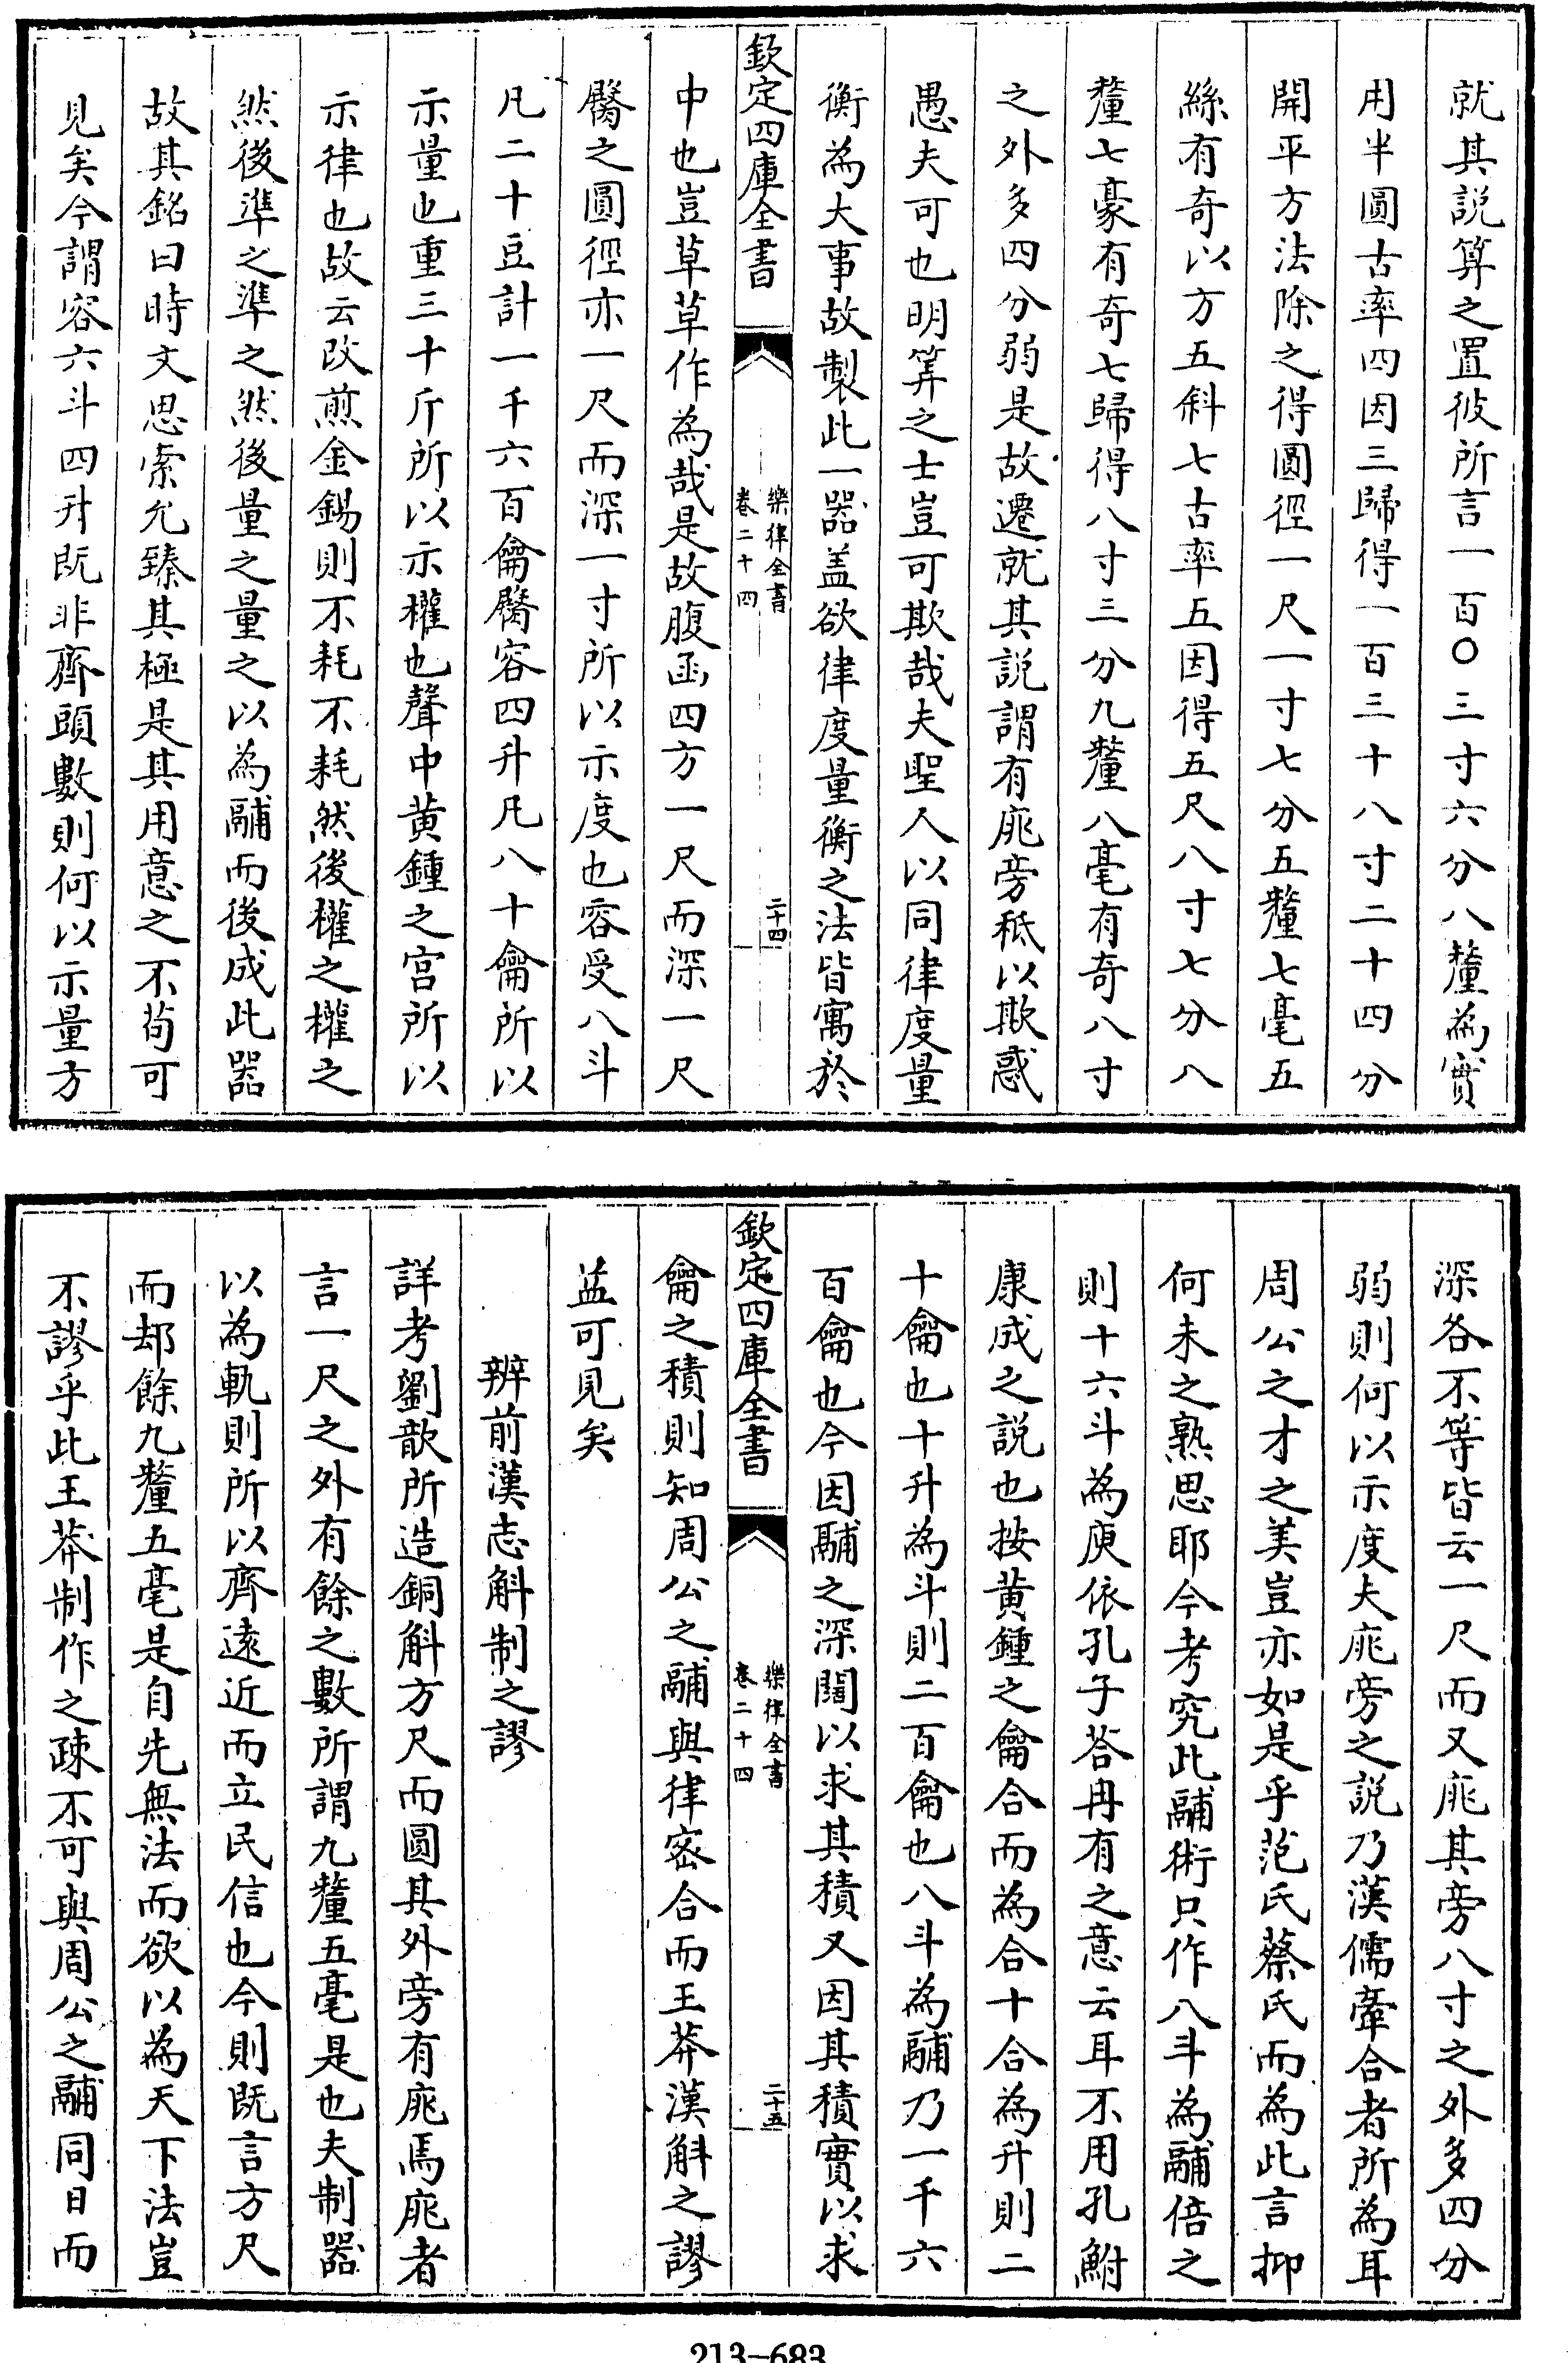 就其説算之置彼所言一百〇三寸六分八釐為實
用半圓古率四因三歸得一百三十八寸二十四分
開平方法除之得圓徑一尺一寸七分五釐七毫五
絲有奇以方五斜七古率五因得五尺八寸七分八
釐七豪有奇七歸得八寸三分九釐八毫有奇八寸
之外多四分弱是故遷就其説謂有庣旁秪以欺惑
愚夫可也明筭之士豈可欺哉夫聖人以同律度量
衡為大事故製此一器盖欲律度量衡之法皆寓於
欽定四庫全書
樂律全書
卷二十四
二十四
中也豈草草作為哉是故腹函四方一尺而深一尺
臋之圓徑亦一尺而深一寸所以示度也容受八斗
凡二十豆計一千六百龠臋容四升凡八十龠所以
示量也重三十斤所以示權也聲中黄鍾之宫所以
示律也故云改煎金錫則不耗不耗然後權之權之
然後準之準之然後量之量之以為鬴而後成此器
故其銘曰時文思索允臻其極是其用意之不苟可
見矣今謂容六斗四升既非齊頭數則何以示量方
深各不等皆云一尺而又庣其旁八寸之外多四分
弱則何以示度夫庣旁之説乃漢儒牽合者所為耳
周公之才之美豈亦如是乎范氏蔡氏而為此言抑
何未之熟思耶今考究此鬴術只作八斗為鬴倍之
則十六斗為庾依孔子荅冉有之意云耳不用孔鮒
康成之説也按黄鍾之龠合而為合十合為升則二
十龠也十升為斗則二百龠也八斗為鬴乃一千六
百龠也今因鬴之深闊以求其積又因其積實以求
欽定四庫全書
樂律全書
卷二十四
二十五
龠之積則知周公之鬴與律宻合而王莽漢斛之謬
益可見矣
辨前漢志斛制之謬
詳考劉歆所造銅斛方尺而圓其外旁有庣焉庣者
言一尺之外有餘之數所謂九釐五毫是也夫制器
以為軌則所以齊遠近而立民信也今則既言方尺
而却餘九釐五毫是自先無法而欲以為天下法豈
不謬乎此王莽制作之疎不可與周公之鬴同日而
213-683